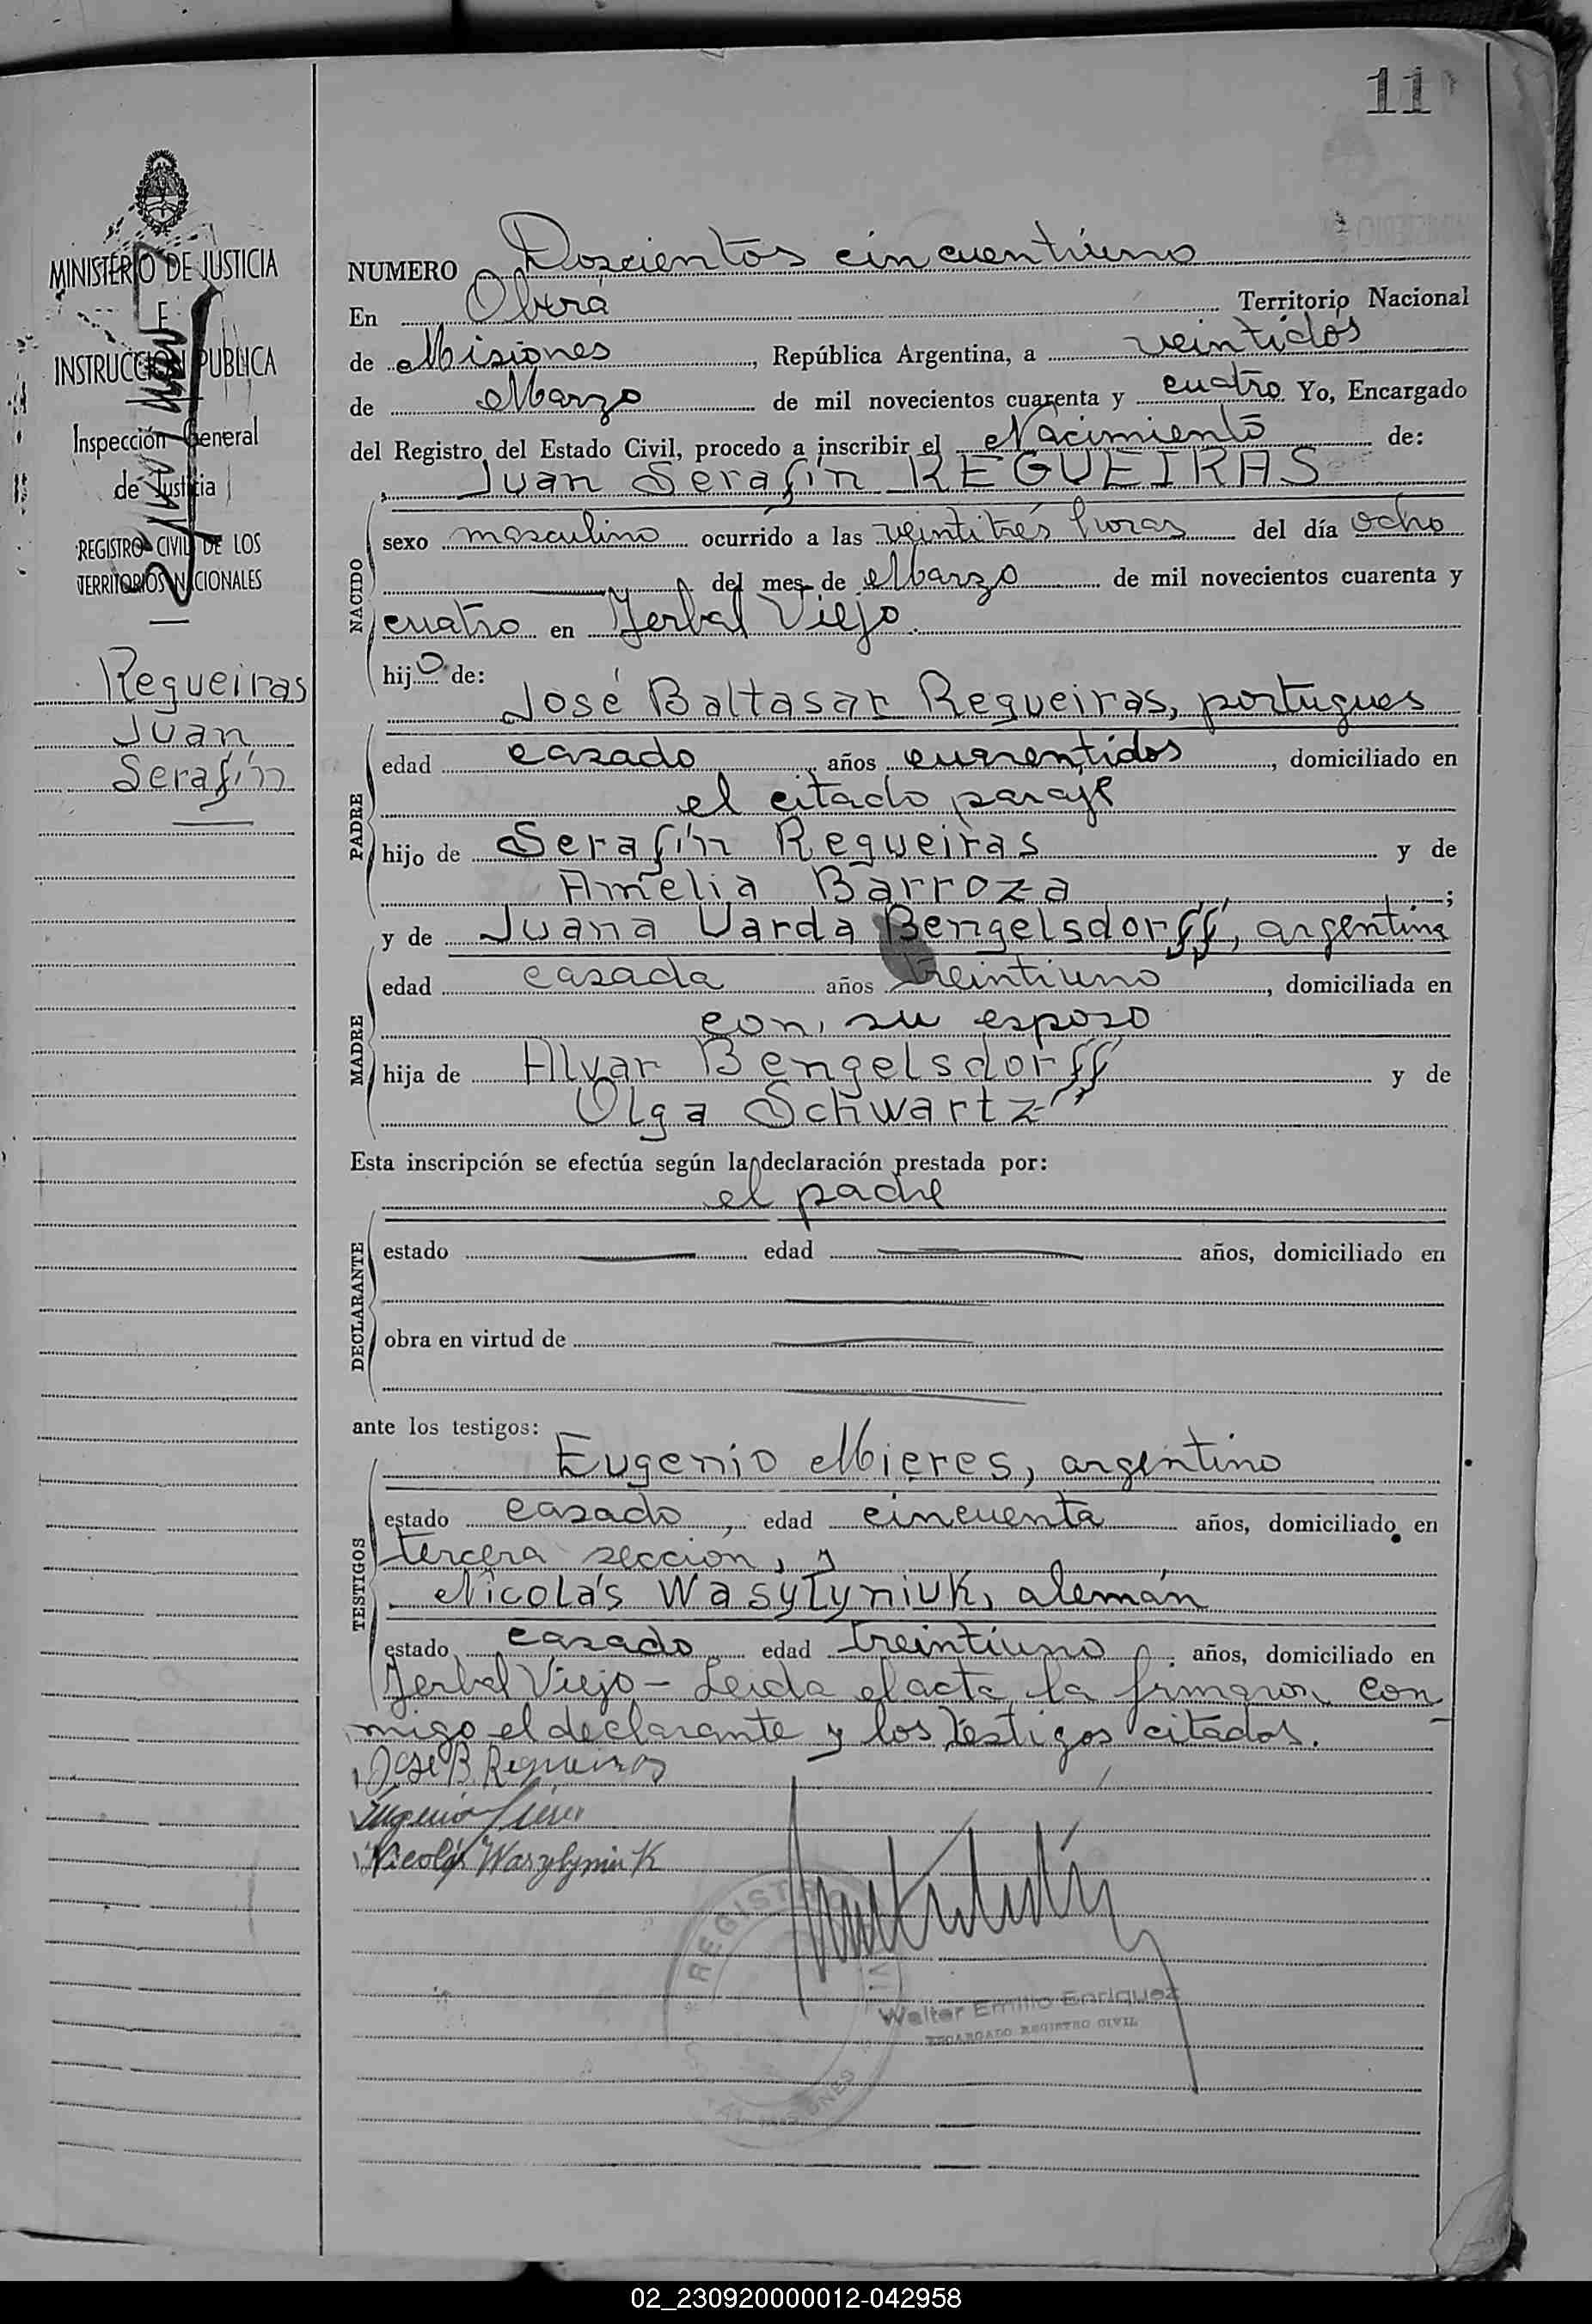 11
MINISTERIO DE JUSTICIA
E
INSTRUCCION PUBLICA
Inspección General
de Justicia
REGISTRO CIVIL DE LOS
TERRITORIOS NACIONALES
Regueiras
Juan
Serafín
NUMERO Doscientos cincuentiuno
En Oberá Territorio Nacional
de Misiones, República Argentina, a veintidós
de Marzo de mil novecientos cuarenta y cuatro Yo, Encargado
del Registro del Estado Civil, procedo a inscribir el Nacimiento de:
Juan Serafín REGUEIRAS
NACIDO
sexo masculino ocurrido a las veintitrés horas del día ocho
del mes de Marzo de mil novecientos cuarenta y
cuatro en Yerbal Viejo.
hijo de:
José Baltasar Regueiras, portugues
PADRE
edad casado años cuarentidos, domiciliado en
el citado paraje
hijo de Serafín Regueiras y de
Amelia Barroza;
y de Juana Varda Bengelsdorff, argentina
MADRE
edad casada años treintiuno, domiciliada en
con su esposo
hija de Alvar Bengelsdorff y de
Olga Schwartz
Esta inscripción se efectúa según la declaración prestada por:
el padre
DECLARANTE
estado edad años, domiciliado en
obra en virtud de
ante los testigos:
Eugenio Mieres, argentino
TESTIGOS
estado casado, edad cincuenta años, domiciliado en
tercera sección, y
Nicolás Wasylyniuk, alemán
estado casado edad treintiuno años, domiciliado en
Yerbal Viejo - Leida el acta la firmaron con
migo el declarante y los testigos citados.
José B. Regueiras
Eugenio Mieres
Nicolás Wasylyniuk
REGISTRO CIVIL
MISIONES
Walter Emilio Enriquez
ENCARGADO REGISTRO CIVIL
02_230920000012-042958